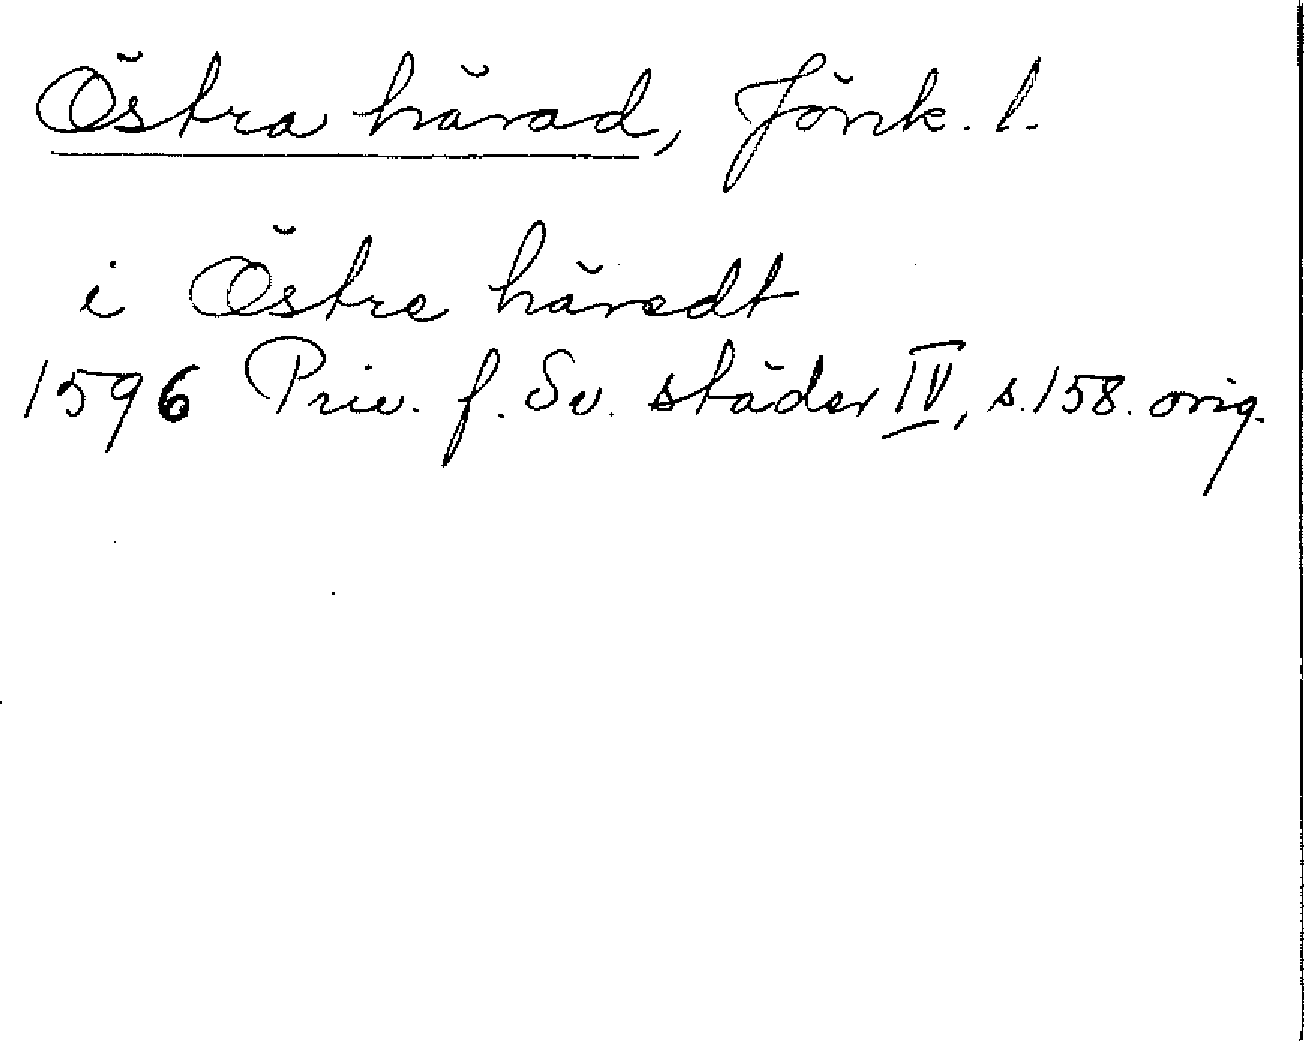 Östra härad, Jönk. l.
i Östre häredt
1596 Priv. f. Sv. städer IV, s. 158. orig.